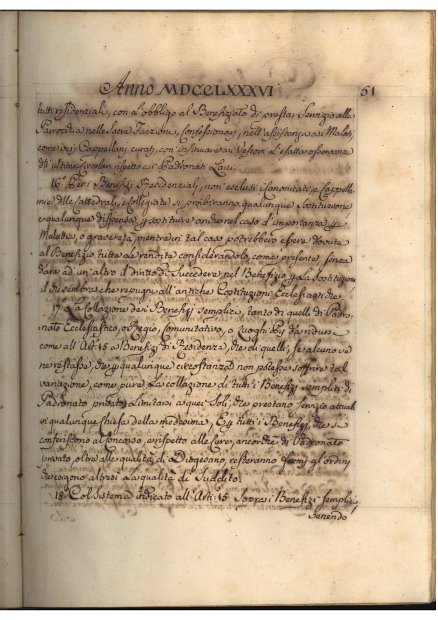 Anno MDCCLXXXVI 51
tutti residenziali, con l'obbligo al Benefiziato di prestar Servizio alla
Parrocchia nelle Sacre Funzioni, Confessionarj, nell'assistenza ai Malati,
come veri Cappellani curati, con insinuare ai Vescovi l'esatta osservanza
dell'ultima Circolare rispetto ai Padronati Laici.
16. Per i Benefizj Residenziali, non esclusi i Canonicati e Cappelle
nie delle Cattedrali, e Collegiate si proibiranno qualunque Coadiutorie,
e qualunque dispensa
Malattia, o grave età, mentre in tal caso potrebbero essere dovute
al Benefizio tutte le rendite considerandolo, come presente, senza
dare ad un'altro il diritto di Succedere nel Benefizio
che repugna all'antiche Costituzioni Ecclesiastiche.
17. La Collazione dei Benefizj Semplici, tanto di quelli di Padro-
nato Ecclesiastico, o Regio, Comunitativo, o Luoghi Pij da ridursi
come all'Art: 15 a Benefizj di Residenza, che di quelli, se alcuno ve
ne restasse, che per qualunque circostanza non potesse soffrire tal
variazione, come pure la collazione di tutti i Benefizj Semplici di
Padronato privato Limitarsi a quei Soli, che prestano Servizio attuale
a qualunque Chiesa della medesima, E per tutti i Benefizj, che si
conferiscono al Concorso, e rispetto alle Cure, ancorchè di Padronato
privato, oltre alle qualità di Diogesano, resteranno fermi gl'ordini
che esigono altresì la qualità di Suddito.
18. Col Sistema indicato all'Art: 15 Sopra i Benefizj Semplici
Venendo